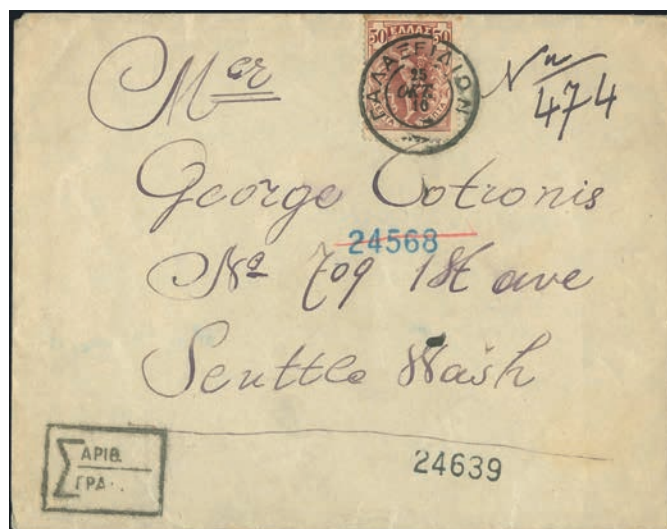 50 ΕΛΛΑΣ 50
ΓΑΛΑΞΕΙΔΙΟΝ
25
ΟΚΤ.
10
Mer
Nn
474
George Cotronis
24568
No 709 1st ave
Seuttle Wash
Σ ΑΡΙΘ.
ΓΡΑ
24639